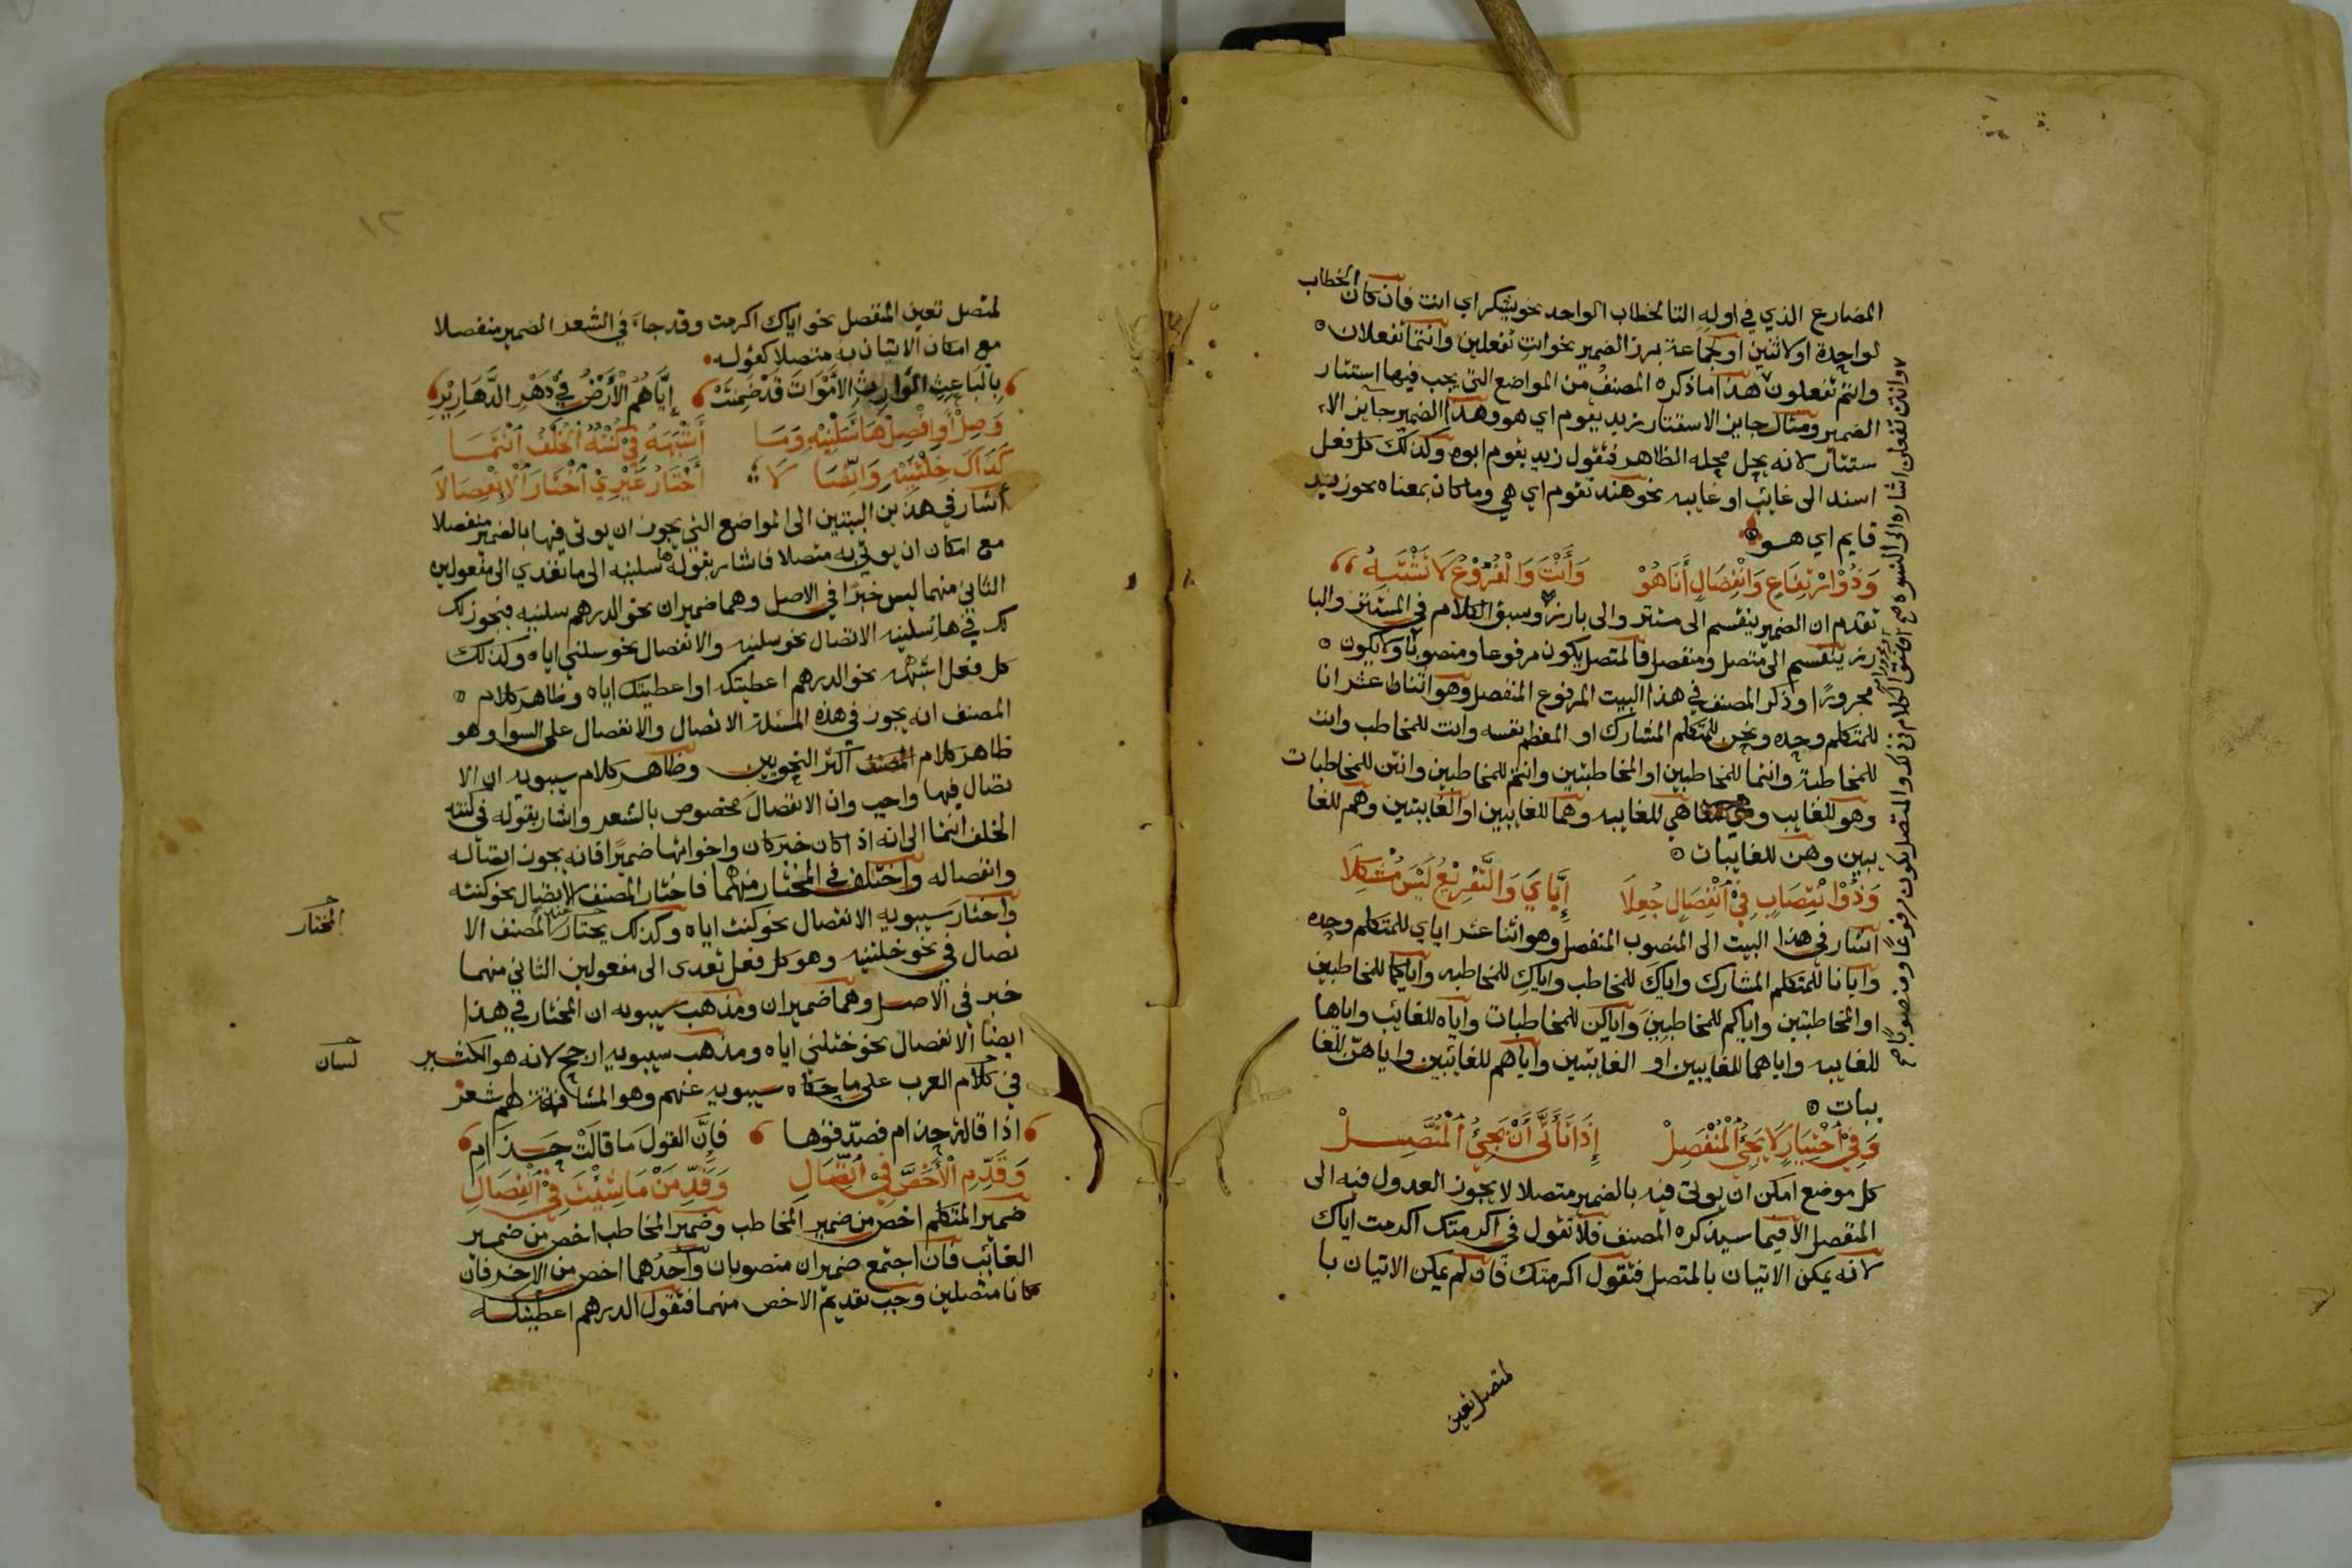 المضارع الذي في اوله التا لخطاب الواحد نحو تشكر اي انت فان كان الخطاب
لواحدة او لاثنين او لجماعة برز الضمير نحو انتِ تفعلين وانتما تفعلان ٥
وانتم تفعلون هذا ما ذكره المصنف من المواضع التي يجب فيها استتار
الضمير ومثال جايز الاستتار زيد يقوم اي هو وهذا الضمير جايز الا
ستتار لانه يحل محله الظاهر فتقول زيد يقوم ابوه وكذلك كل فعل
اسند الى غايب او غايبه نحو هند تقوم اي هي وما كان بمعناه نحو زيد
قايم اي هو
وَذُوْ ارْتِفَاعٍ وَانْفِصَالٍ أَنَا هُوْ وَأَنْتَ وَالْفُرُوْعُ لَا تَشْتَبِهُ
تقدم ان الضمير ينقسم الى مستتر والى بارز وسبق الكلام في المستتر والبا
رز ينقسم الى متصل ومنفصل فالمتصل يكون مرفوعا ومنصوبا ولا يكون ٥
مجرورًا وذكر المصنف في هذا البيت المرفوع المنفصل وهو اثنا عشر انا
للمتكلم وحده ونحن للمتكلم المشارك او المعظم نفسه وانت للمخاطب وانت
للمخاطبة وانتما للمخاطبين او المخاطبتين وانتم للمخاطبين وانتن للمخاطبات
وهو للغايب وهي للغايبه وهما للغايبين او الغايبتين وهم للغا
يبين وهن للغايبات ٥
وَذُوْ انْتِصَابٍ فِيْ انْفِصَالٍ جُعِلَا إِيَّايَ وَالتَّفْرِيْعُ لَيْسَ مُشْكِلَا
اشار في هذا البيت الى المنصوب المنفصل وهو اثنا عشر اياي للمتكلم وحده
وايانا للمتكلم المشارك واياكَ للمخاطب واياكِ للمخاطبه واياكما للمخاطبين
او المخاطبتين واياكم للمخاطبين واياكن للمخاطبات واياه للغائب واياها
للغايبه واياهما للغايبين او الغايبتين واياهم للغائبين واياهن للغا
يبات ٥
وَفِيْ اخْتِيَارٍ لَا يَجِئُ الْمُنْفَصِلْ إِذَا تَأَتَّى أَنْ يَجِئُ الْمُتَّصِلْ
كل موضع امكن ان يوتى فيه بالضمير متصلا لا يجوز العدول فيه الى
المنفصل الا فيما سيذكره المصنف فلا تقول في اكرمتك اكرمت اياك
لانه يمكن الاتيان بالمتصل فتقول اكرمتك فان لم يمكن الاتيان با
لمتصل تعين
وانتن تفعلن
لمتصل تعين المنفصل نحو اياك اكرمت وقد جاء في الشعر الضمير منفصلا
مع امكان الاتيان به متصلا كقوله
بِالبَاعِثِ الوَارِثِ الأَمْوَاتَ قَدْ ضَمِنَتْ إِيَّاهُمُ الْأَرْضُ فِيْ دَهْرِ الدَّهَارِيْرِ
وَصِلْ أَوِ افْصِلْ هَا سَلْنِيْهِ وَمَا أَشْبَهَهُ فِيْ كُنْتُهُ الْخُلْفُ انْتَمَا
كَذَاكَ خِلْتَنِيْهِ وَاتِّصَا لَا أَخْتَارُ غَيْرِيْ اخْتَارَ الْاِنْفِصَالَا
اشار في هذين البيتين الى المواضع التي يجوز ان يوتى فيها بالضمير منفصلا
مع امكان ان يوتى به متصلا فاشار بقوله ها سلنيه الى ما تعدي الى مفعولين
الثاني منهما ليس خبرًا في الاصل وهما ضميران نحو الدرهم سلنيه فيجوز لك
لك في ها سلنيه الاتصال نحو سلنيه والانفصال نحو سلني اياه وكذلك
كل فعل اشبهه نحو الدرهم اعطيتكه او اعطيتك اياه وظاهر كلام ٥
المصنف انه يجوز في هذه المسئلة الاتصال والانفصال على السوا وهو
ظاهر كلام اكثر النحويين وظاهر كلام سيبويه ان الا
تصال فيها واجب وان الانفصال مخصوص بالشعر واشار بقوله في كنته
الخلف انتما الى انه اذا كان خبر كان واخواتها ضميرًا فانه يجوز اتصاله
وانفصاله واختلف في المختار منهما فاختار المصنف الاتصال نحو كنته
واختار سيبويه الانفصال نحو كنت اياه وكذلك يختار المصنف الا
المختار
تصال في نحو خلتنيه وهو كل فعل تعدى الى مفعولين الثاني منهما
خبر في الاصل وهما ضميران ومذهب سيبويه ان المختار في هذا
ايضًا الانفصال نحو خلتني اياه ومذهب سيبويه ارجح لانه هو الكثير
لسان
في كلام العرب على ما حكاه سيبويه عنهم وهو المشافه لهم شعر
اذا قالت حذام فصدّقوها فإنَّ القولَ ما قالَتْ حَذَامِ
وَقَدِّمِ الْأَخَصَّ فِي اتِّصَالِ وَقَدِّمَنْ مَا شِئْتَ فِيْ انْفِصَالِ
ضمير المتكلم اخص من ضمير المخاطب وضمير المخاطب اخص من ضمير
الغائب فان اجتمع ضميران منصوبان واحدهما اخص من الاخر فان
كانا متصلين وجب تقديم الاخص منهما فتقول الدرهم اعطيتكه
١٢